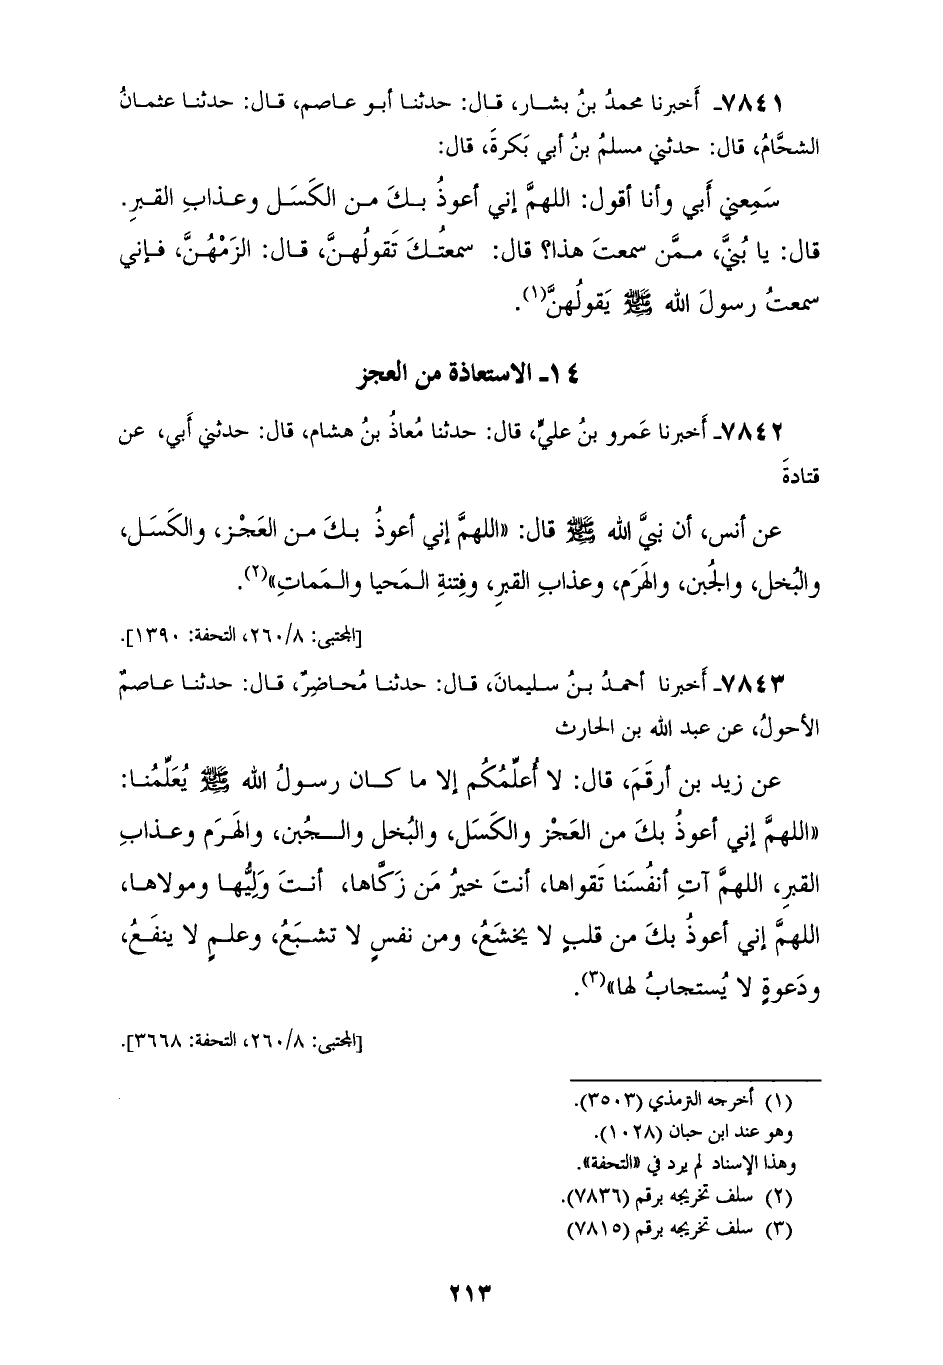 ٧٨٤١ـ أَخبرنا محمدُ بنُ بشـار، قـال: حدثنـا أبـو عـاصم، قـال: حدثنـا عثمـانُ
الشحَّامُ، قال: حدثني مسلمُ بنُ أبي بَكرةَ، قال:
سَمِعني أَبي وأنا أقول: اللهمَّ إني أعوذُ بـكَ مـن الكَسَـل وعـذابِ القـبرِ.
قال: يا بُنيَّ، مـمَّن سمعتَ هذا؟ قال: سمعتُـكَ تَقولُهـنَّ، قـال: الزَمْهُـنَّ، فـإني
سمعتُ رسولَ الله ﷺ يَقولُهنَّ(١).
١٤ـ الاستعاذة من العجز
٧٨٤٢ـ أَخبرنا عَمرو بنُ عليٍّ، قال: حدثنا مُعاذُ بنُ هشام، قال: حدثني أَبي، عن
قتادةَ
عن أنس، أن نبيَّ الله ﷺ قال: «اللهمَّ إني أعوذُ بـكَ مـن العَجْـز، والكَسَـل،
والبُخل، والجُبن، والهَرَم، وعذابِ القبرِ، وفِتنةِ الـمَحيا والـمَماتِ»(٢).
[المجتبى: ٢٦٠/٨، التحفة: ١٣٩٠].
٧٨٤٣ـ أَخبرنا أحمـدُ بـنُ سـليمانَ، قـال: حدثنـا مُحـاضِرٌ، قـال: حدثنـا عـاصمٌ
الأحولُ، عن عبد الله بن الحارث
عن زيد بن أرقَمَ، قال: لا أُعلِّمُكُم إلا ما كـان رسـولُ الله ﷺ يُعَلِّمُنـا:
«اللهمَّ إني أعوذُ بكَ من العَجْز والكَسَل، والبُخل والـجُبن، والهَرَم وعـذابِ
القبرِ، اللهمَّ آتِ أنفُسَنا تَقواها، أنتَ خيرُ مَن زَكَّاها، أنـتَ وَلِيُّهـا ومولاهـا،
اللهمَّ إني أعوذُ بكَ من قلبٍ لا يخشَعُ، ومن نفسٍ لا تشـبَعُ، وعلـمٍ لا ينفَـعُ،
ودَعوةٍ لا يُستجابُ لها»(٣).
[المجتبى: ٢٦٠/٨، التحفة: ٣٦٦٨].
(١) أخرجه الترمذي (٣٥٠٣).
وهو عند ابن حبان (١٠٢٨).
وهذا الإسناد لم يرد في «التحفة».
(٢) سلف تخريجه برقم (٧٨٣٦).
(٣) سلف تخريجه برقم (٧٨١٥)
٢١٣